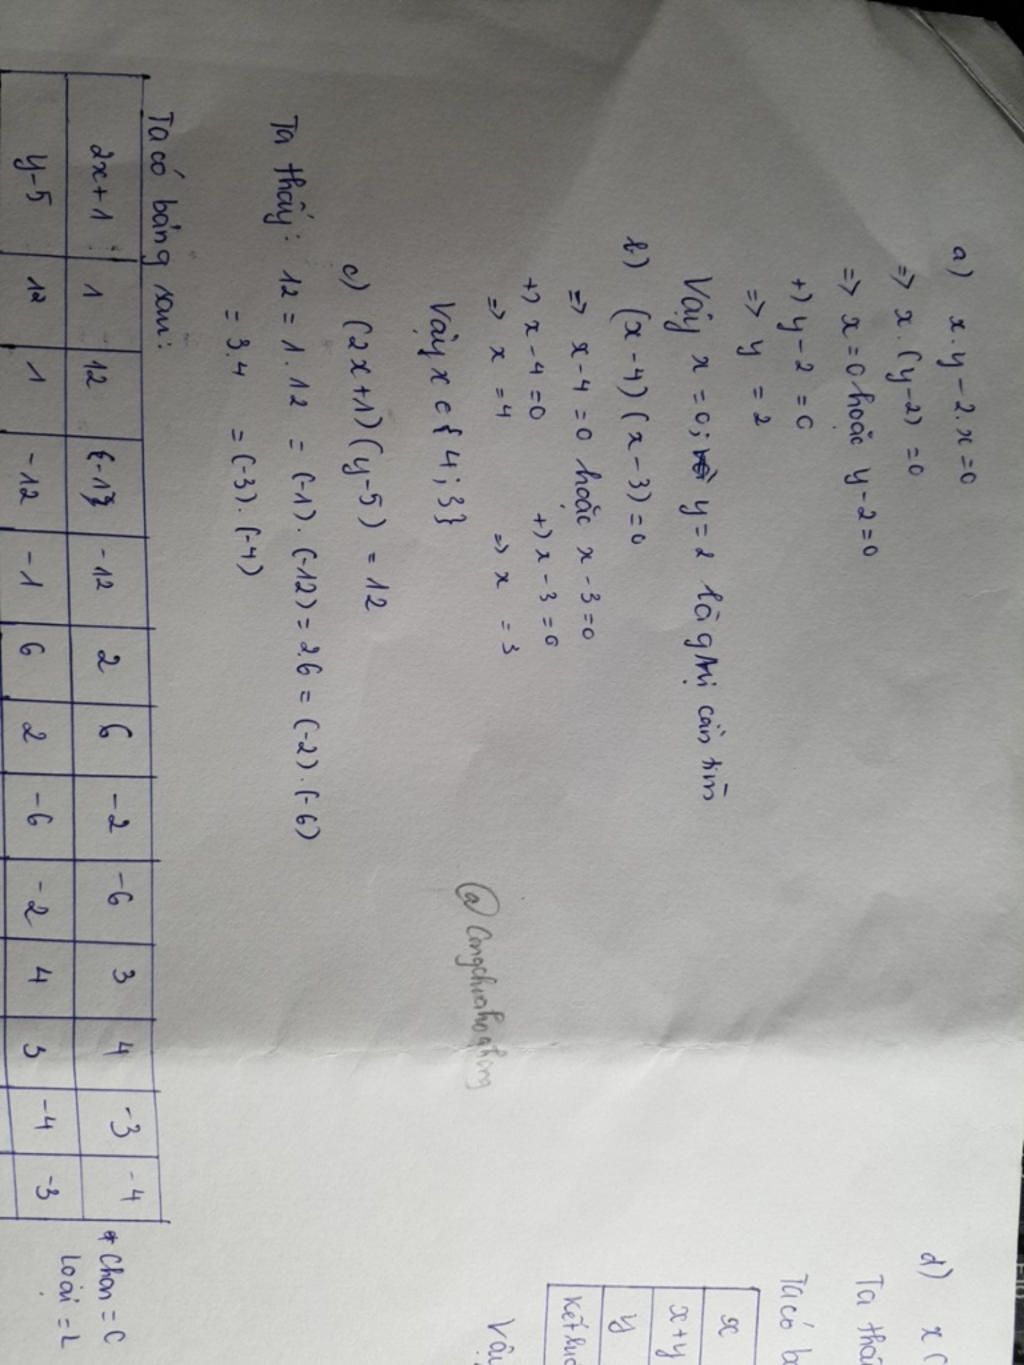 a) x.y-2.x=0
=> x.(y-2)=0
=> x=0 hoặc y-2=0
+) y-2=0
=> y =2
Vậy x=0; y=2 là gtrị cần tìm
b) (x-4)(x-3)=0
=> x-4=0 hoặc x-3=0
+) x-4=0 +) x-3=0
=> x =4 => x =3
Vậy x ∈ {4;3}
c) (2x+1)(y-5)=12
Ta thấy: 12=1.12 =(-1).(-12)=2.6=(-2).(-6)
=3.4 =(-3).(-4)
Ta có bảng sau:
2x+1 1 12 -1 -12 2 6 -2 -6 3 4 -3 -4
y-5 12 1 -12 -1 6 2 -6 -2 4 3 -4 -3
* Chọn = C
Loại = L
@Congchuahoahong
d) x(
Ta thấ
Ta có b
x
x+y
y
Kết luậ
Vậy